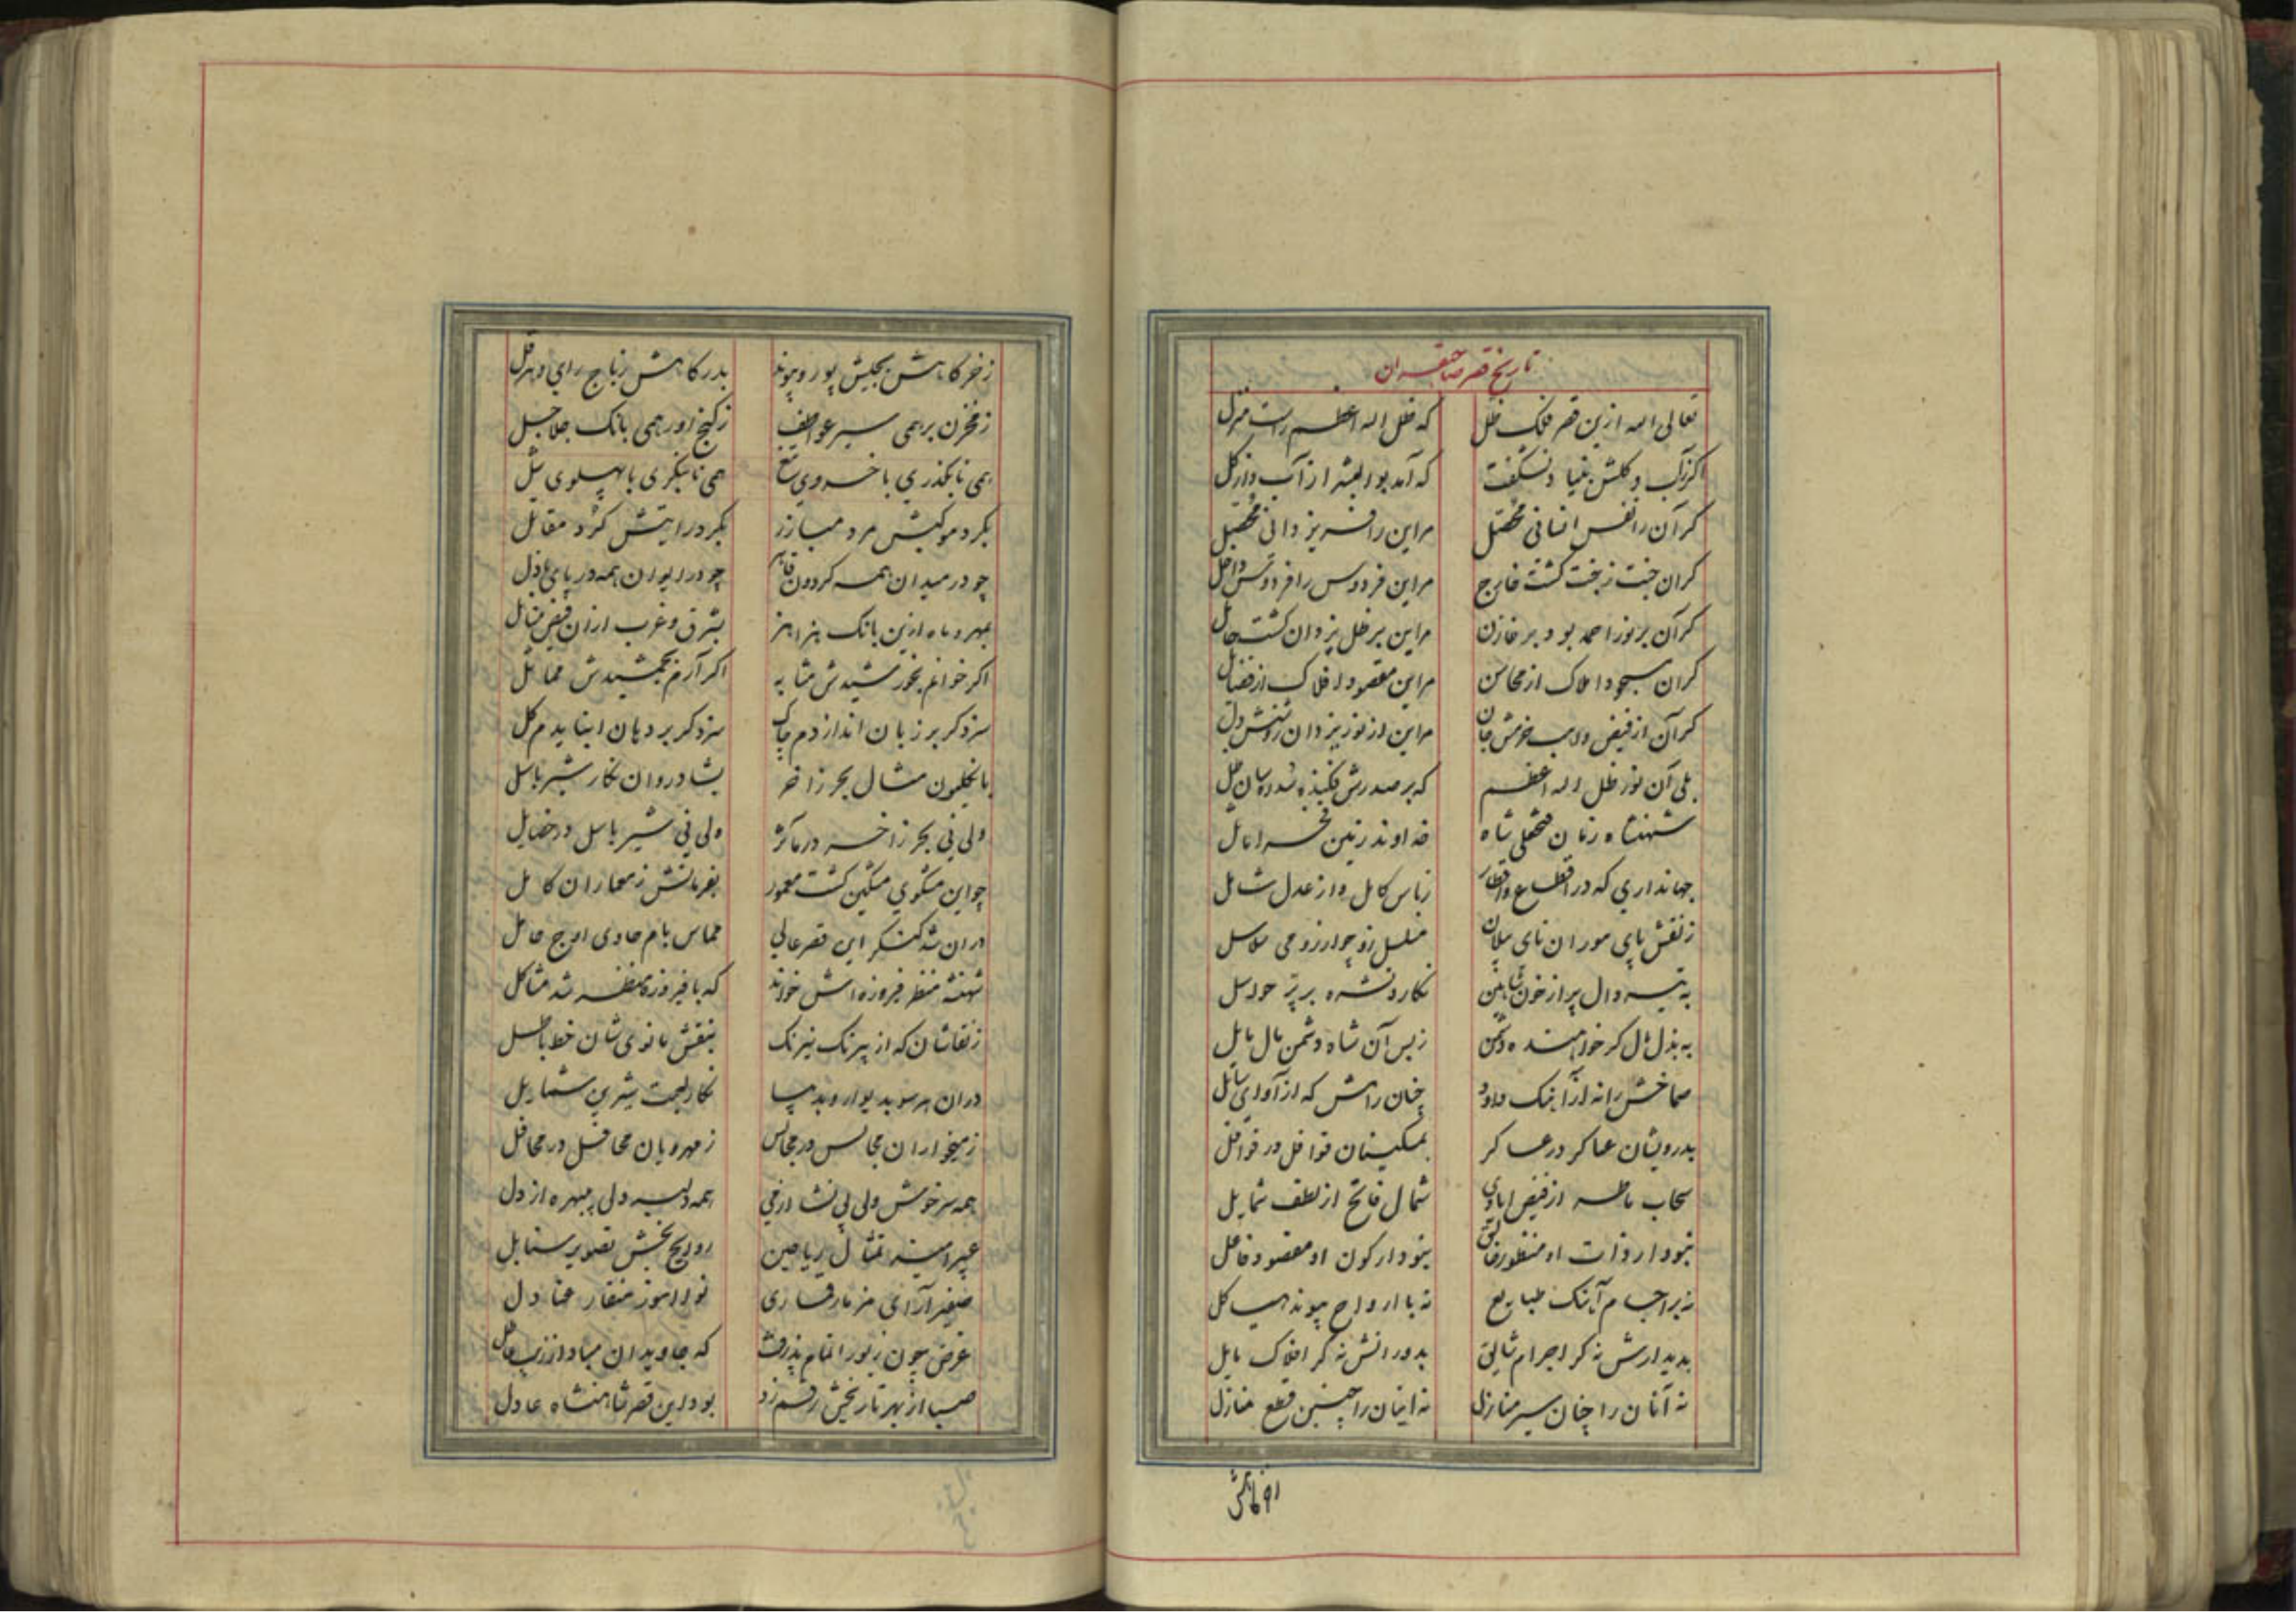 تاریخ قصر صاحبقران
تعالی الله ازین قصر فلک ظل که ظل اله اعظم راست منزل
اگر زآب و گلش بنیاد نشکفت که آمد بوالبشر از آب و از گل
گر آن را نفس انسانی محصل مراین را فر یزدانی محصل
گر آن جنت ز بخت گشت خارج مراین فردوس را فردوس داخل
گر آن بر نور احمد بود بر خازن مراین بر ظل یزدان گشت حامل
گر آن مسجود املاک از محاسن مراین مقصود افلاک از فضایل
گر آن از فیض واهب خرمش جان مراین از نور یزدان روشنش دل
بلی آن نور ظل اله اعظم که بر صدرش فکنده سان ظل
شهنشاه زمان فتحعلی شاه خداوند زمین فخر اماثل
جهانداری که در اقطاع و اقطار زباس کامل و از عدل شامل
ز نقش پای موران نای پیلان مسلسل زو چو ارزومی سلاسل
به تیر دال پر از خون شاهین نگارد نشره بر پر حواصل
به بذل مال گر خواهنده دشمن زبس آن شاه دشمن مال باذل
صماخش را نه از آهنگ داود چنان رامش که از آوای سائل
بدرویشان عساکر در عساکر بمسکینان قوافل در قوافل
سحاب ماطر از فیض ایادی شمال فاتح از لطف شمایل
نبود ار ذات او منظور خالق نبود ار کون او مقصود فاعل
نه براجسام آهنگ طبایع نه با ارواح پیوند هیاکل
بدیدارش نه گر اجرام شایق بدورانش نه گر افلاک مایل
نه آنان را چنان سیر منازل نه اینان را چنین قطع منازل
زخرگاهش بجیش پور و پیوند بدرگاهش زباج رای و هرقل
ز مخزن بر همی سیر عواطف ز گنج آور همی بانگ جلاجل
همی تا بگذری با خسروی تیغ همی تا بنگری با پهلوی یل
بگرد موکبش مرد مبارز بگرد رایتش گرد مقاتل
چو در میدان همه گردون قایم چو در ایوان همه دریای باذل
بمهر و ماه ازین بانگ هزاهز بشرق و غرب ازان فیض منائل
اگر خوانم بخورشیدش مشابه اگر آرم بجمشیدش مماثل
سزد گر بر زبان اندازدم چاک سزد گر بر دهان انبایدم گل
بانگلیون مثال بحر زاخر بشادروان نگار شیر باسل
ولی نی بحر زاخر در مآثر ولی نی شیر باسل در خصایل
چو این مشکوی مشکین گشت معمور بفرمانش ز معماران کامل
دران شد کنگر این قصر عالی مماس بام حاوی اوج حامل
شهنشه منظر فیروزه اش خواند که با فیروزه منظر شد مشاکل
ز نقاشان که از بیرنگ نیرنگ بنقش مانوی شان خط باطل
دران هر سو بدیوار و بدیبا نگار لعبت شیرین شمایل
ز میخواران مجالس در مجالس ز مهرویان محافل در محافل
همه سرخوش ولی بی نشاء از می همه دلبر ولی بی بهره از دل
عبیر آمیز تمثال ریاحین روایح بخش تصویر سنابل
صفیر آرای مزمار قماری نوا آموز منقار عنادل
غرض چون زیور اتمام پذرفت که جاویدان مباد از زیب عاطل
صبا از بهر تاریخش رقم زد بود این قصر شاهنشاه عادل